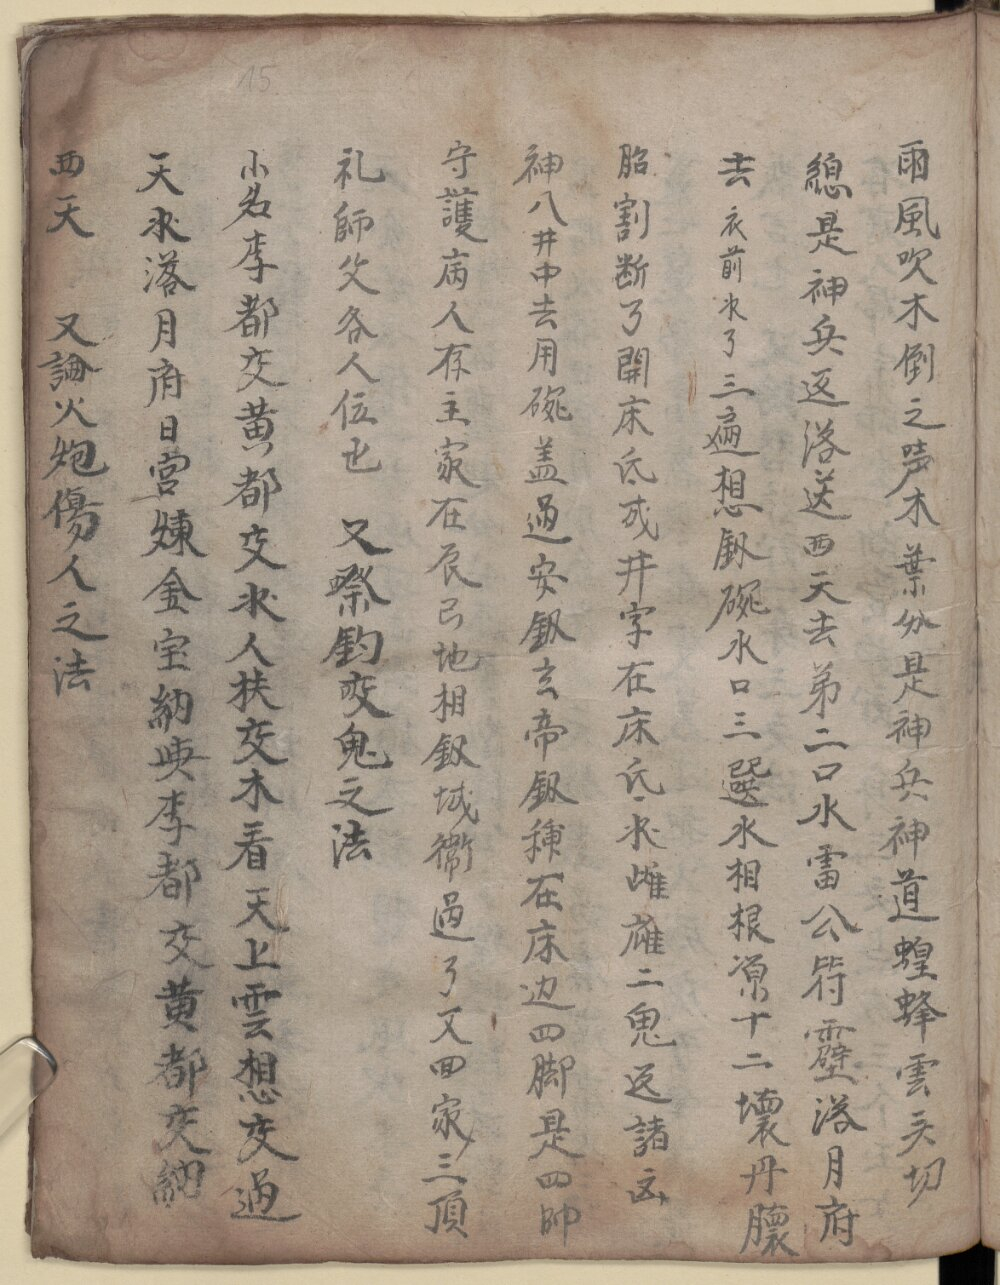 雨風吹木倒之声木葉妢是神兵神道蝗蜂雲天切
總是神兵返落送西天去弟二口水雷公符霹落月府
去衣前水了三遍想釼碗水口三選水相根源十二壞丹
胎割断了開床氐成井字在床氐水雌雄二鬼送諸
神八井中去用碗盖過安釼玄帝釼種在床边四脚是四帥
守護病人存主家在辰巳地相釼城衞過了又回家三頂
礼師父各人位也 又祭釣交鬼之法
小名李都交黄都交水人扶交木看天上雲想交過
天水落月府日宮煉金宝納與李都交黄都交納
西天 又論火炮傷人之法
15